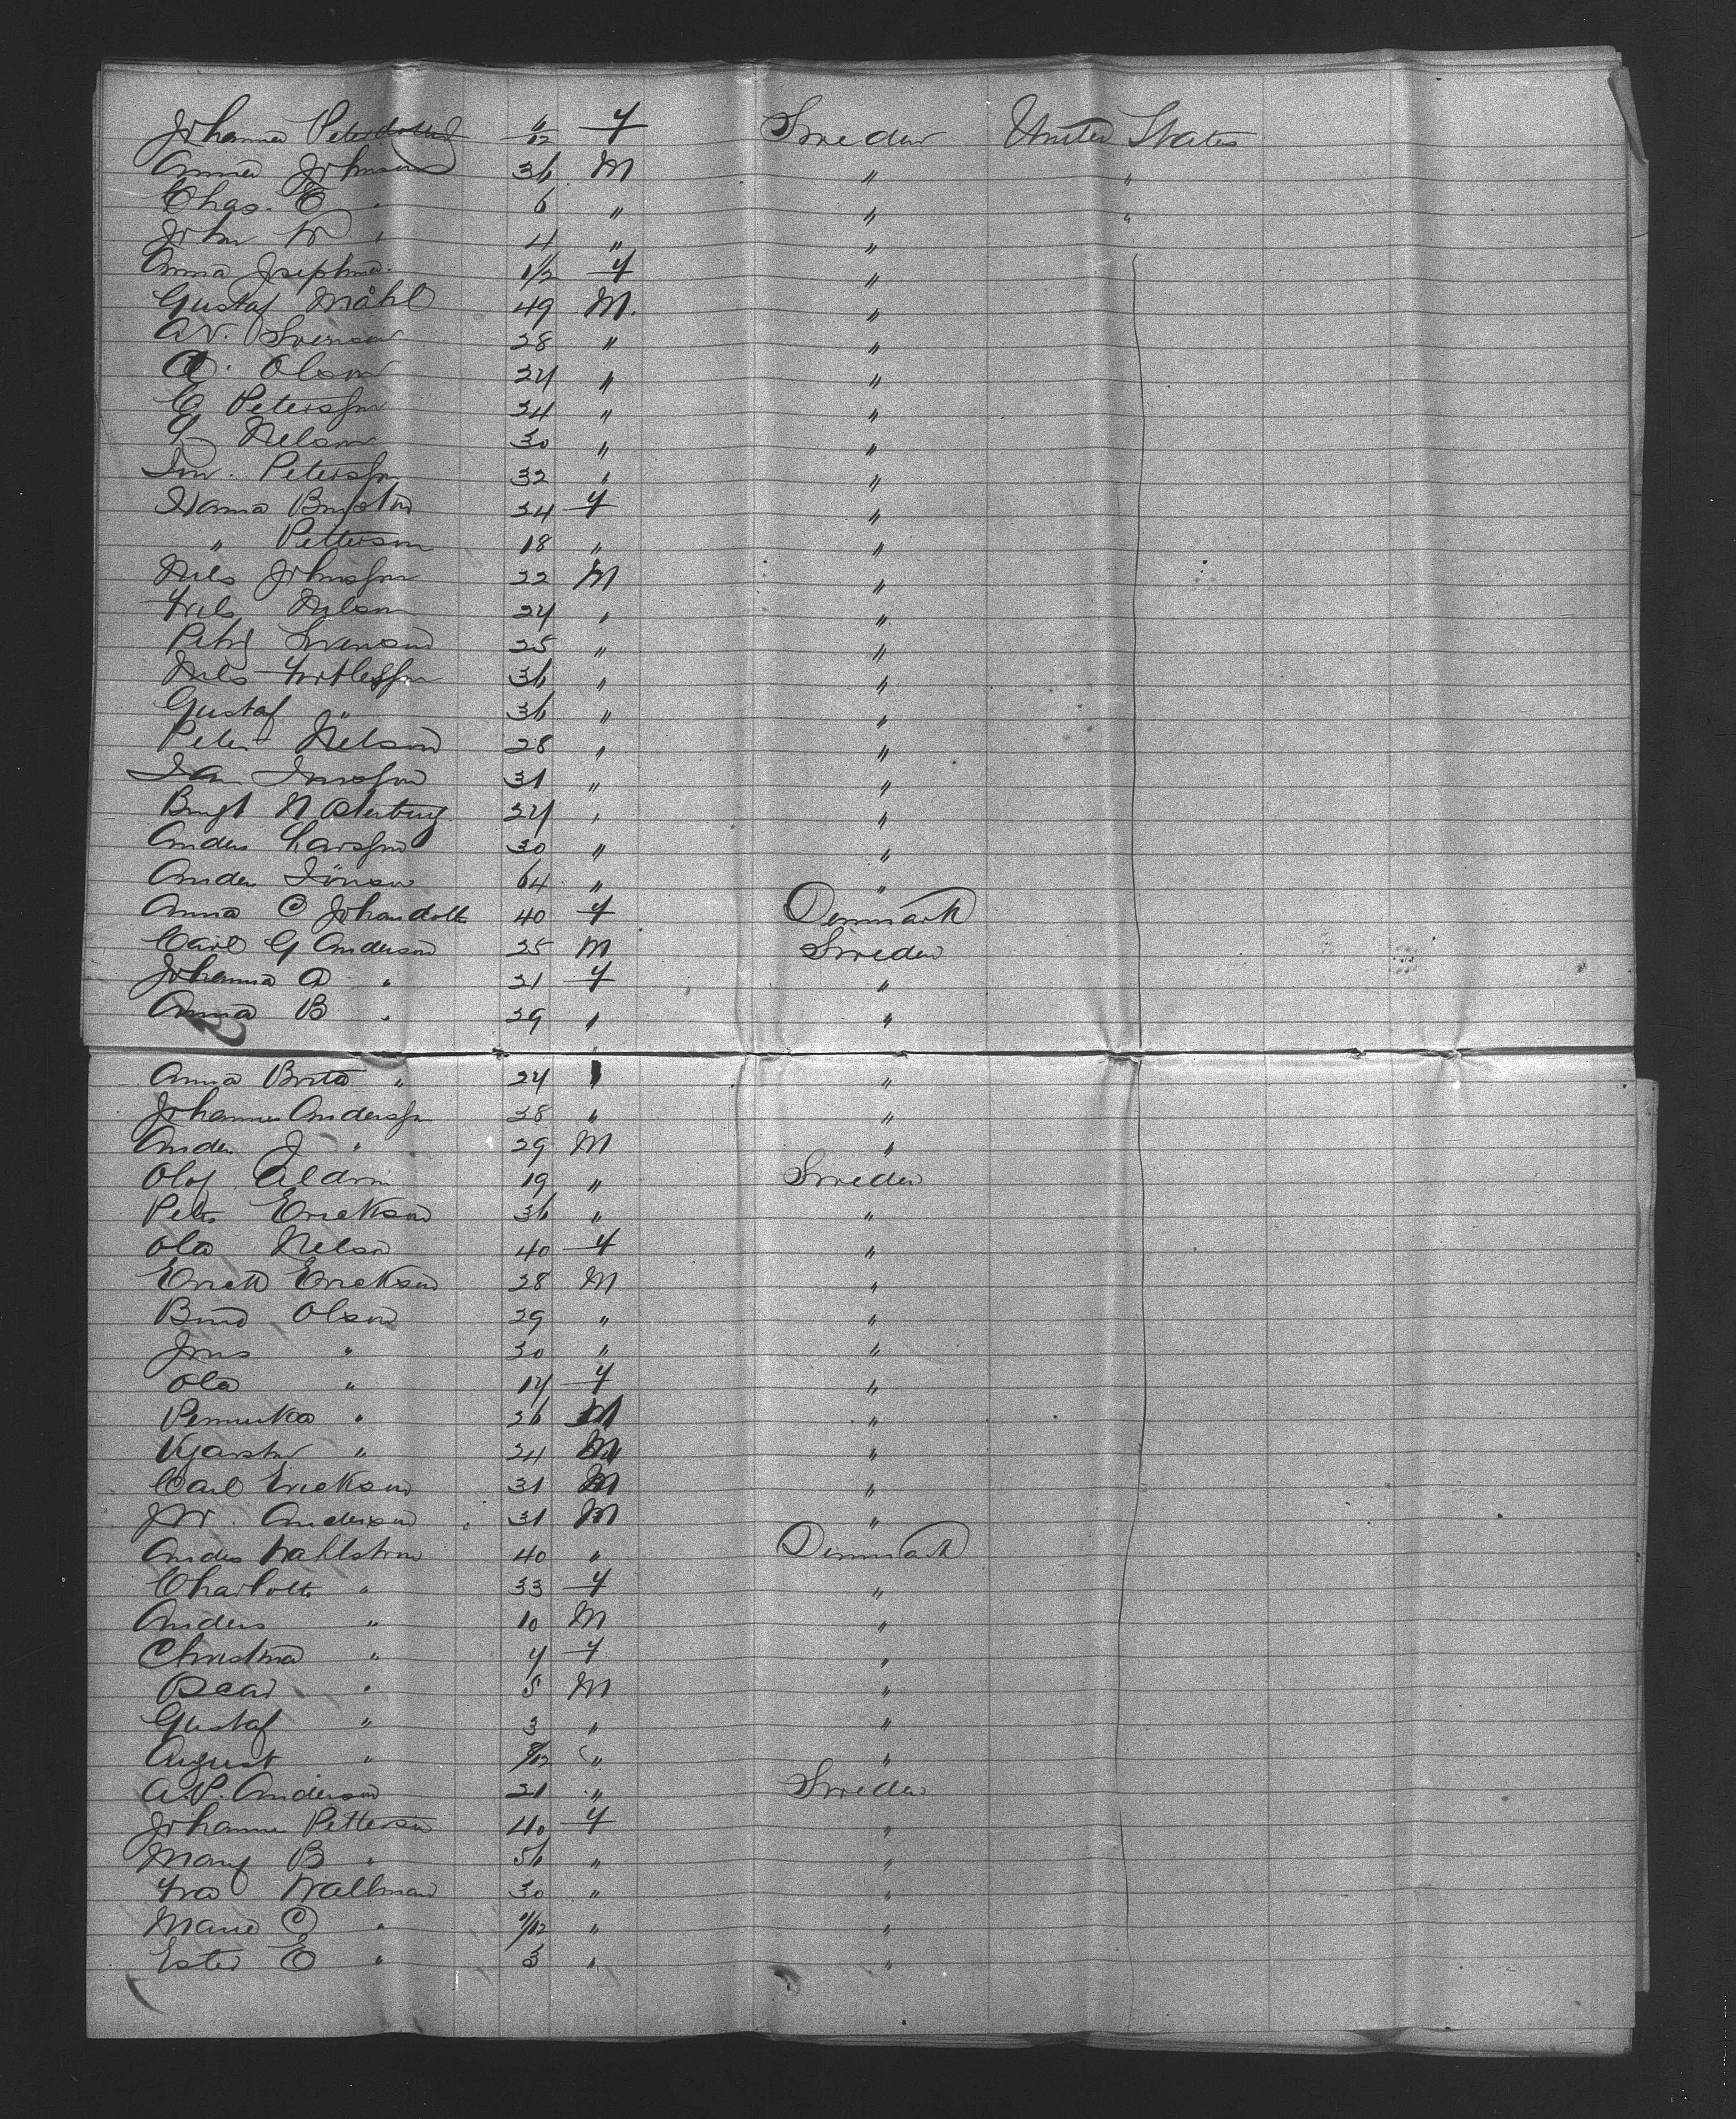 Johanna Petersdotter 6/12 F Sweden United States
Anna Johnson 36 M " "
Chas. E " 6 " " "
John W " 4 " "
Anna Josephina 1 1/2 F "
Gustaf Måhl 49 M. "
A.V. Svenson 28 " "
A. Olson 24 " "
C Petersson 24 " "
G Nelson 30 " "
Petersson 32 " "
Hanna 24 F "
" Petterson 18 " "
Nils Johnsson 22 M "
Nilson 24 " "
Svenson 25 " "
Nils 36 " "
Gustaf " 36 " "
Peter Nelson 28 " "
31 " "
Bengt N Osterberg 24 " "
Anders Larsson 30 " "
Anders Jönson 64 " "
Anna C Johansdotter 40 F Denmark
Carl G Anderson 25 M Sweden
Johanna A " 21 F "
Anna B " 29 " "
Anna Brita " 24 " "
Johannes Andersson 38 " "
Anders J " 29 M "
Olof Aldrin 19 " Sweden
Peter Erickson 36 " "
Ola Nelson 40 F "
Erick Erickson 28 M "
Olson 29 " "
Jons " 30 " "
Ola " 14 F "
" 26 M "
" 24 M "
Carl Erickson 31 M "
Anderson 31 M "
Anders Wahlstrom 40 " Denmark
Charlotte " 33 F "
Anders " 10 M "
Christina " 7 F "
Oscar " 5 M "
Gustaf " 3 " "
August " 8/12 " "
A.P. Anderson 21 " Sweden
Johanna Petterson 40 F "
Mary B " 56 " "
Wallman 30 " "
Marie C " 11/12 " "
Ester E " 3 " "